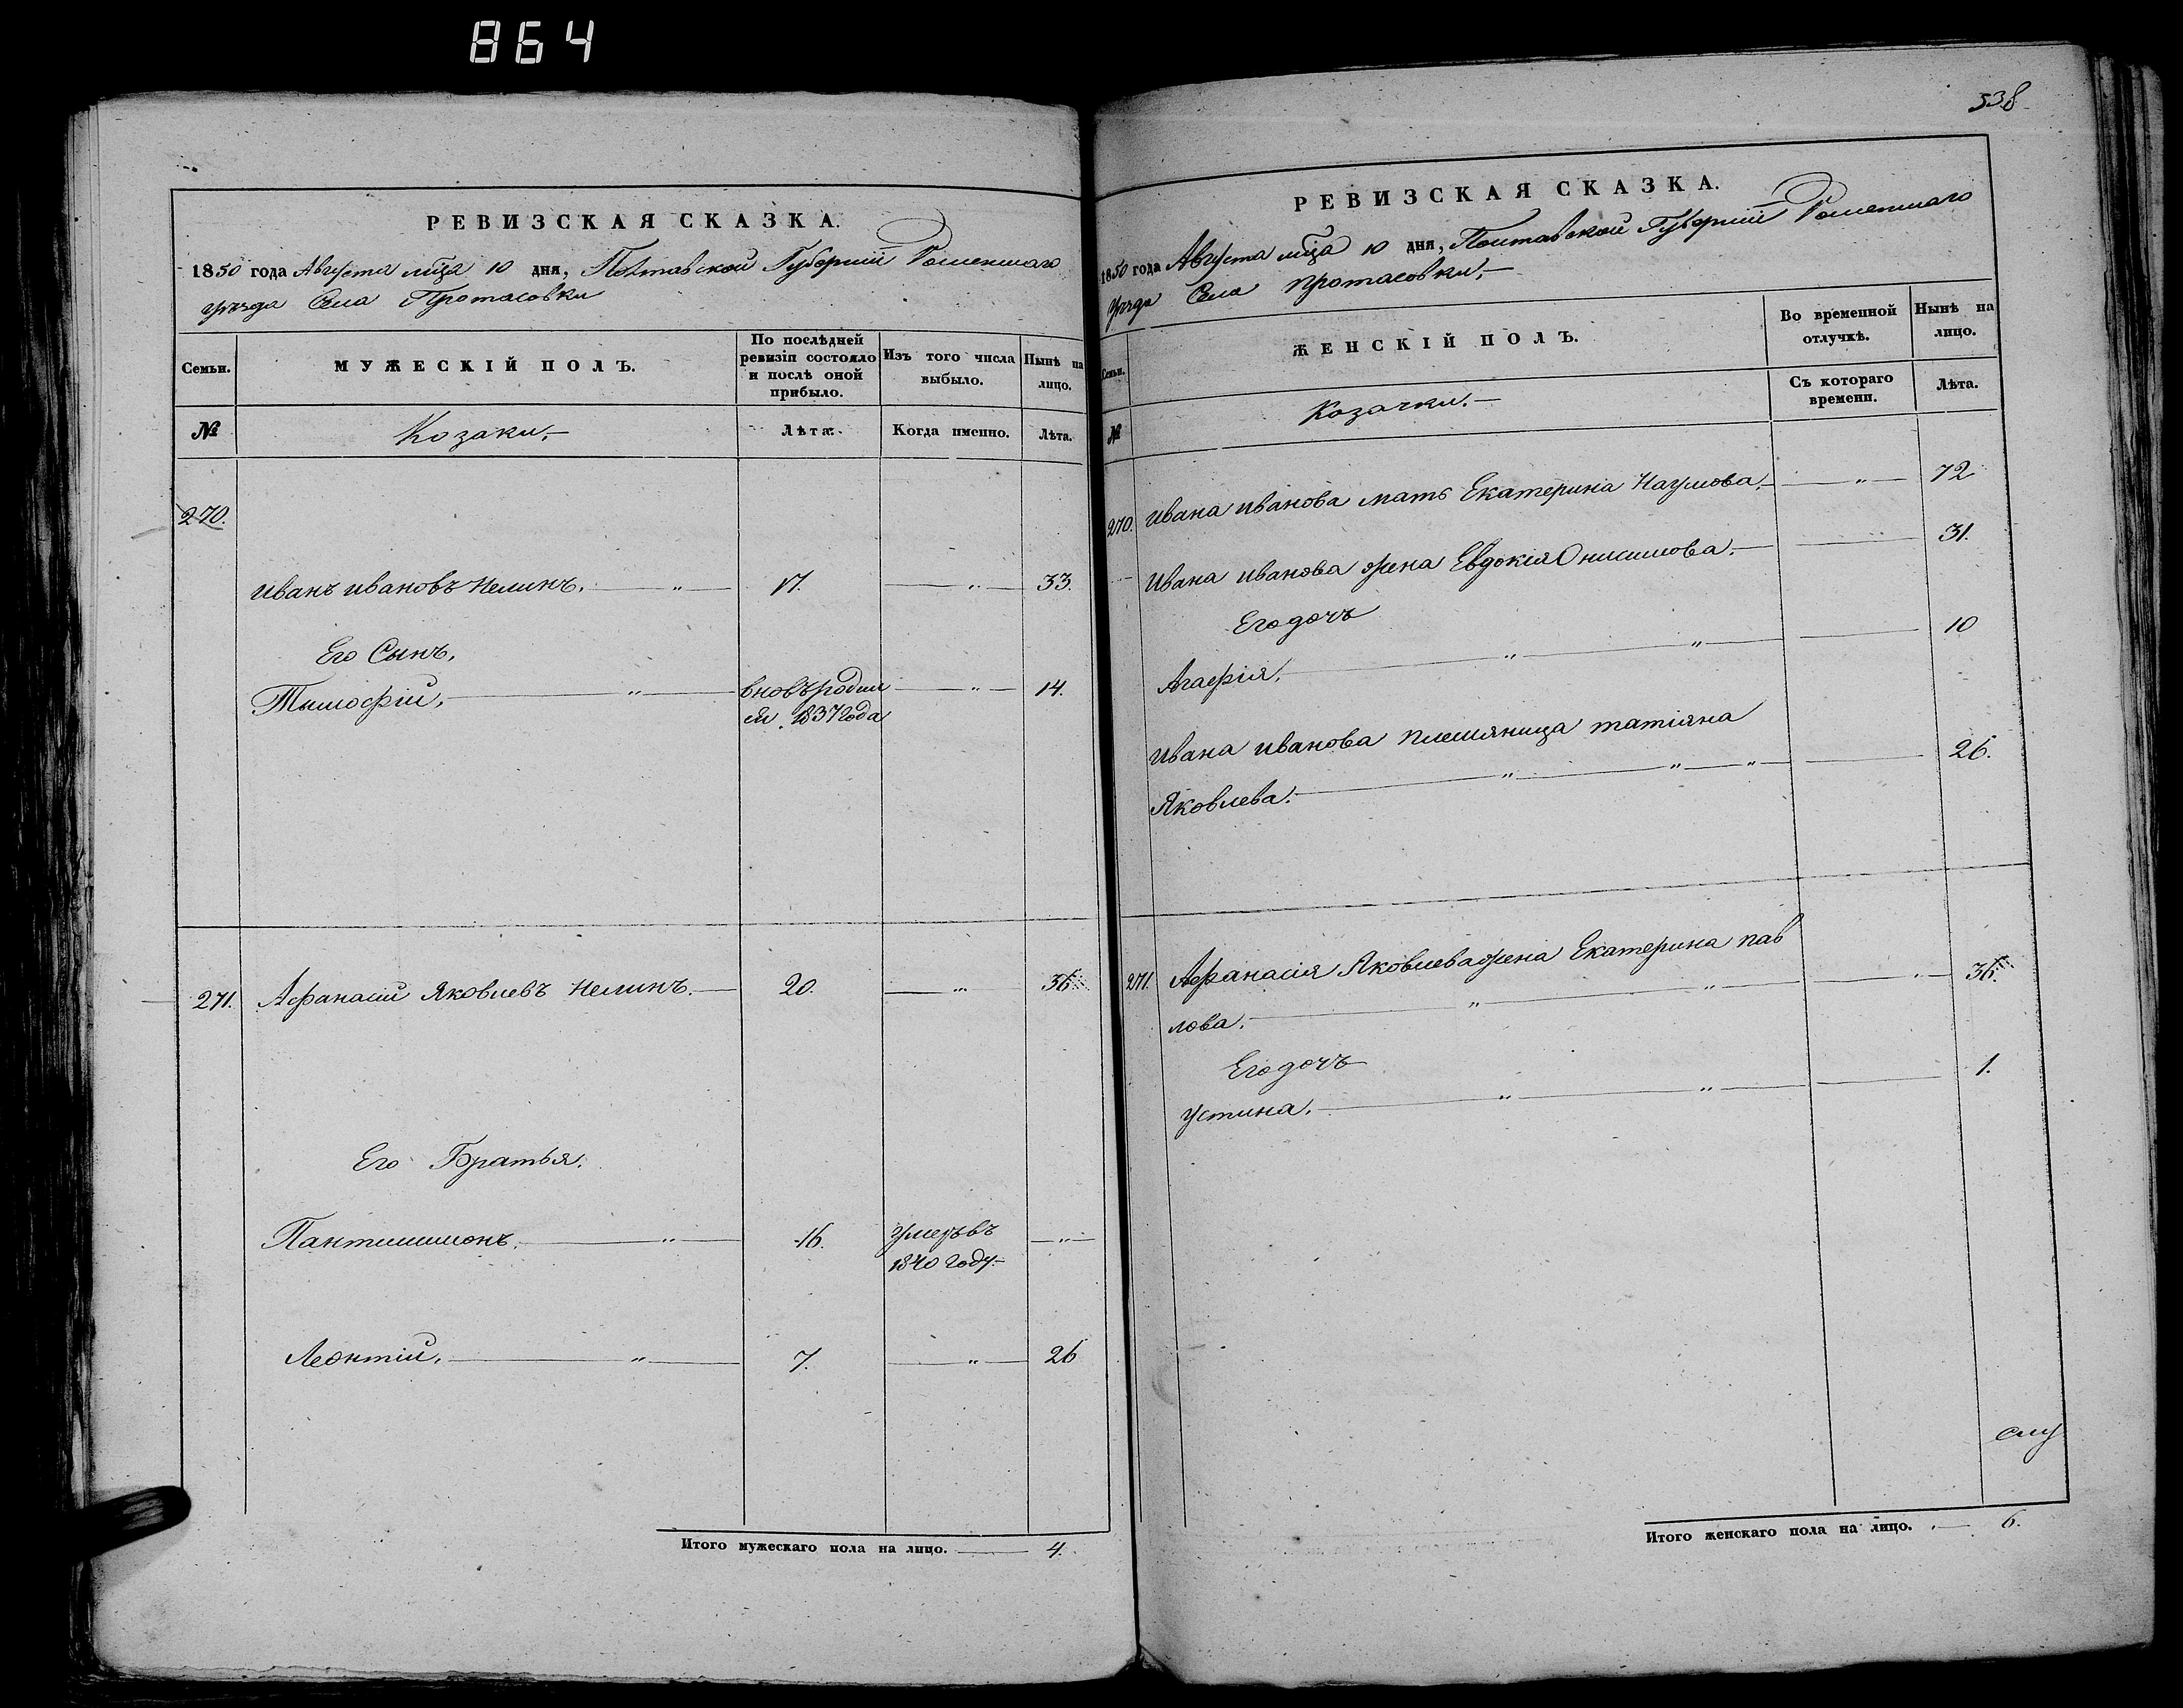 864
РЕВИЗСКАЯ СКАЗКА.
1850 года Августа мца 10 дня, Полтавской Губерніи Роменшаго
уѣзда Села Протасовки
Семьи.
МУЖЕСКІЙ ПОЛЪ.
По послѣдней
ревизіи состояло
и послѣ оной
прибыло.
Изъ того числа
выбыло.
Нынѣ на
лицо.
№
Козаки.
Лѣта.
Когда именно.
Лѣта.
270.
Иванъ Ивановъ Нелинъ. 17. 33.
Его Сынъ,
Тымофій, вновь родил 14.
ся 1837 года
271. Афанасій Яковлевъ Нелинъ. 20. 36
Его Братья.
Пантилимонъ. 16. умеръ въ
1840 году.
Леонтій, 7. 26
Итого мужескаго пола на лицо. 4.
538
РЕВИЗСКАЯ СКАЗКА.
1850 года Августа мца 10 дня, Полтавской Губерніи Роменшаго
Уѣзда Села Протасовки.
Семьи.
ЖЕНСКІЙ ПОЛЪ.
Во временной
отлучкѣ.
Нынѣ на
лицо.
№
Козачки.
Съ котораго
времени.
Лѣта.
270. Ивана Иванова мать Екатерина Наумова. 72
Ивана Иванова жена Евдокія Онисимова. 31.
Его дочь
Агафія. 10
Ивана Иванова племяница татіяна
Яковлева. 26.
271. Афанасія Яковлева жена Екатерина пав
лова. 36.
Его дочь
Устина. 1.
Итого женскаго пола на лицо. 6.